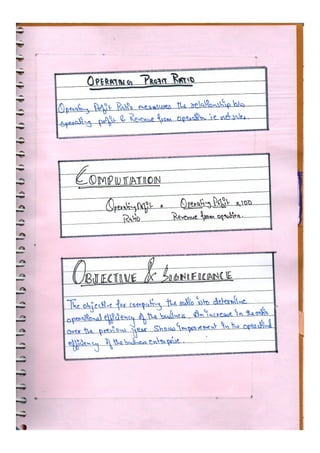 OPERATING PROFIT RATIO
Operating Profit Ratio measures the relationship b/w
operating profit & Revenue from operation i.e net sales.
COMPUTATION
Operating Profit = Operating Profit x100
Ratio Revenue from operation.
OBJECTIVE & SIGNIFICANCE
The objective for computing the ratio is to determine
operational efficiency of the business. An increase in the ratio
over the previous year shows improvement in the operational
efficiency of the business enterprise.